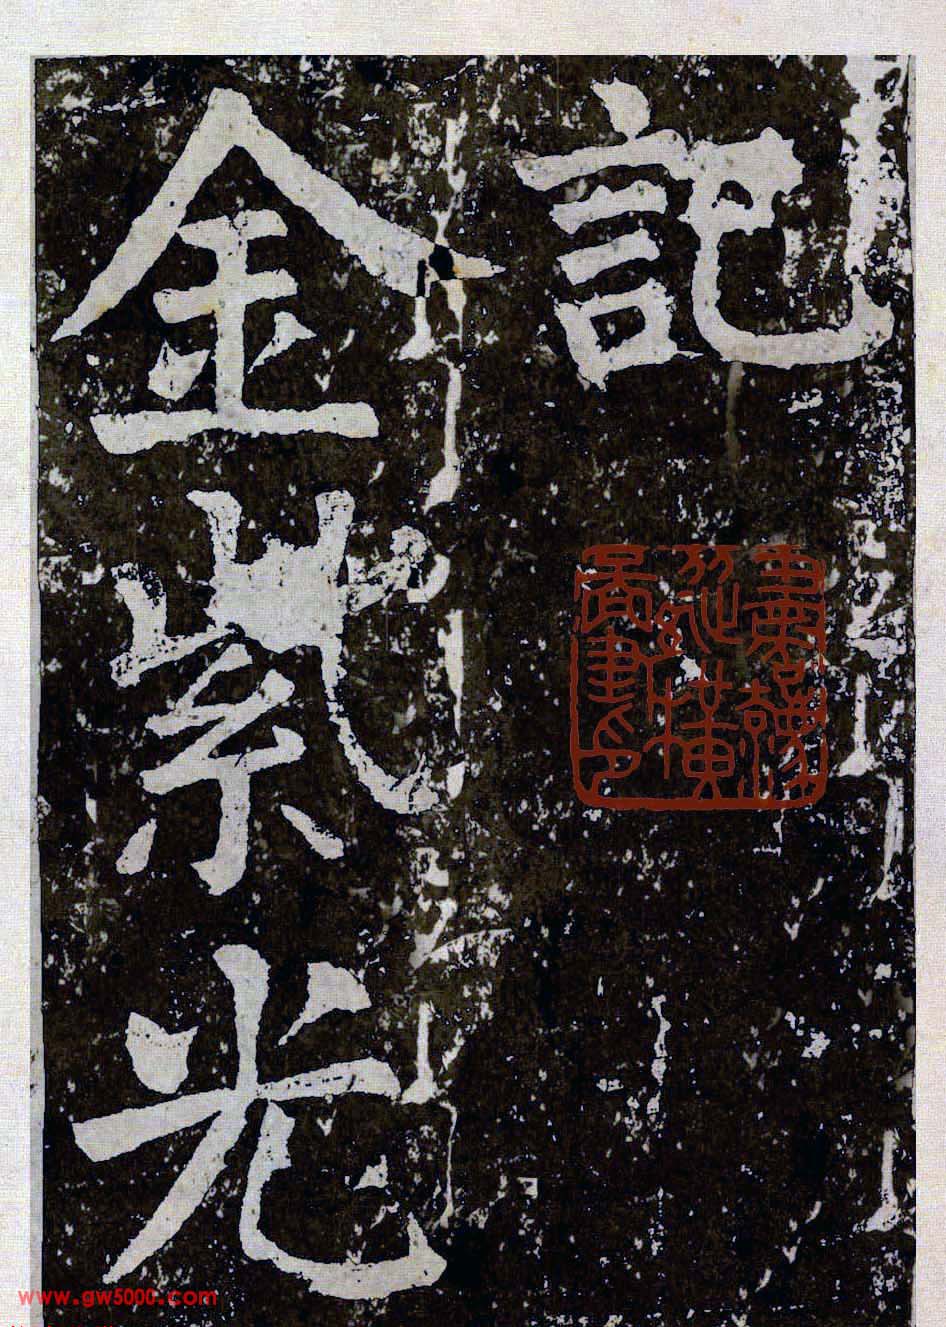 記
金紫光
www.gw5000.com